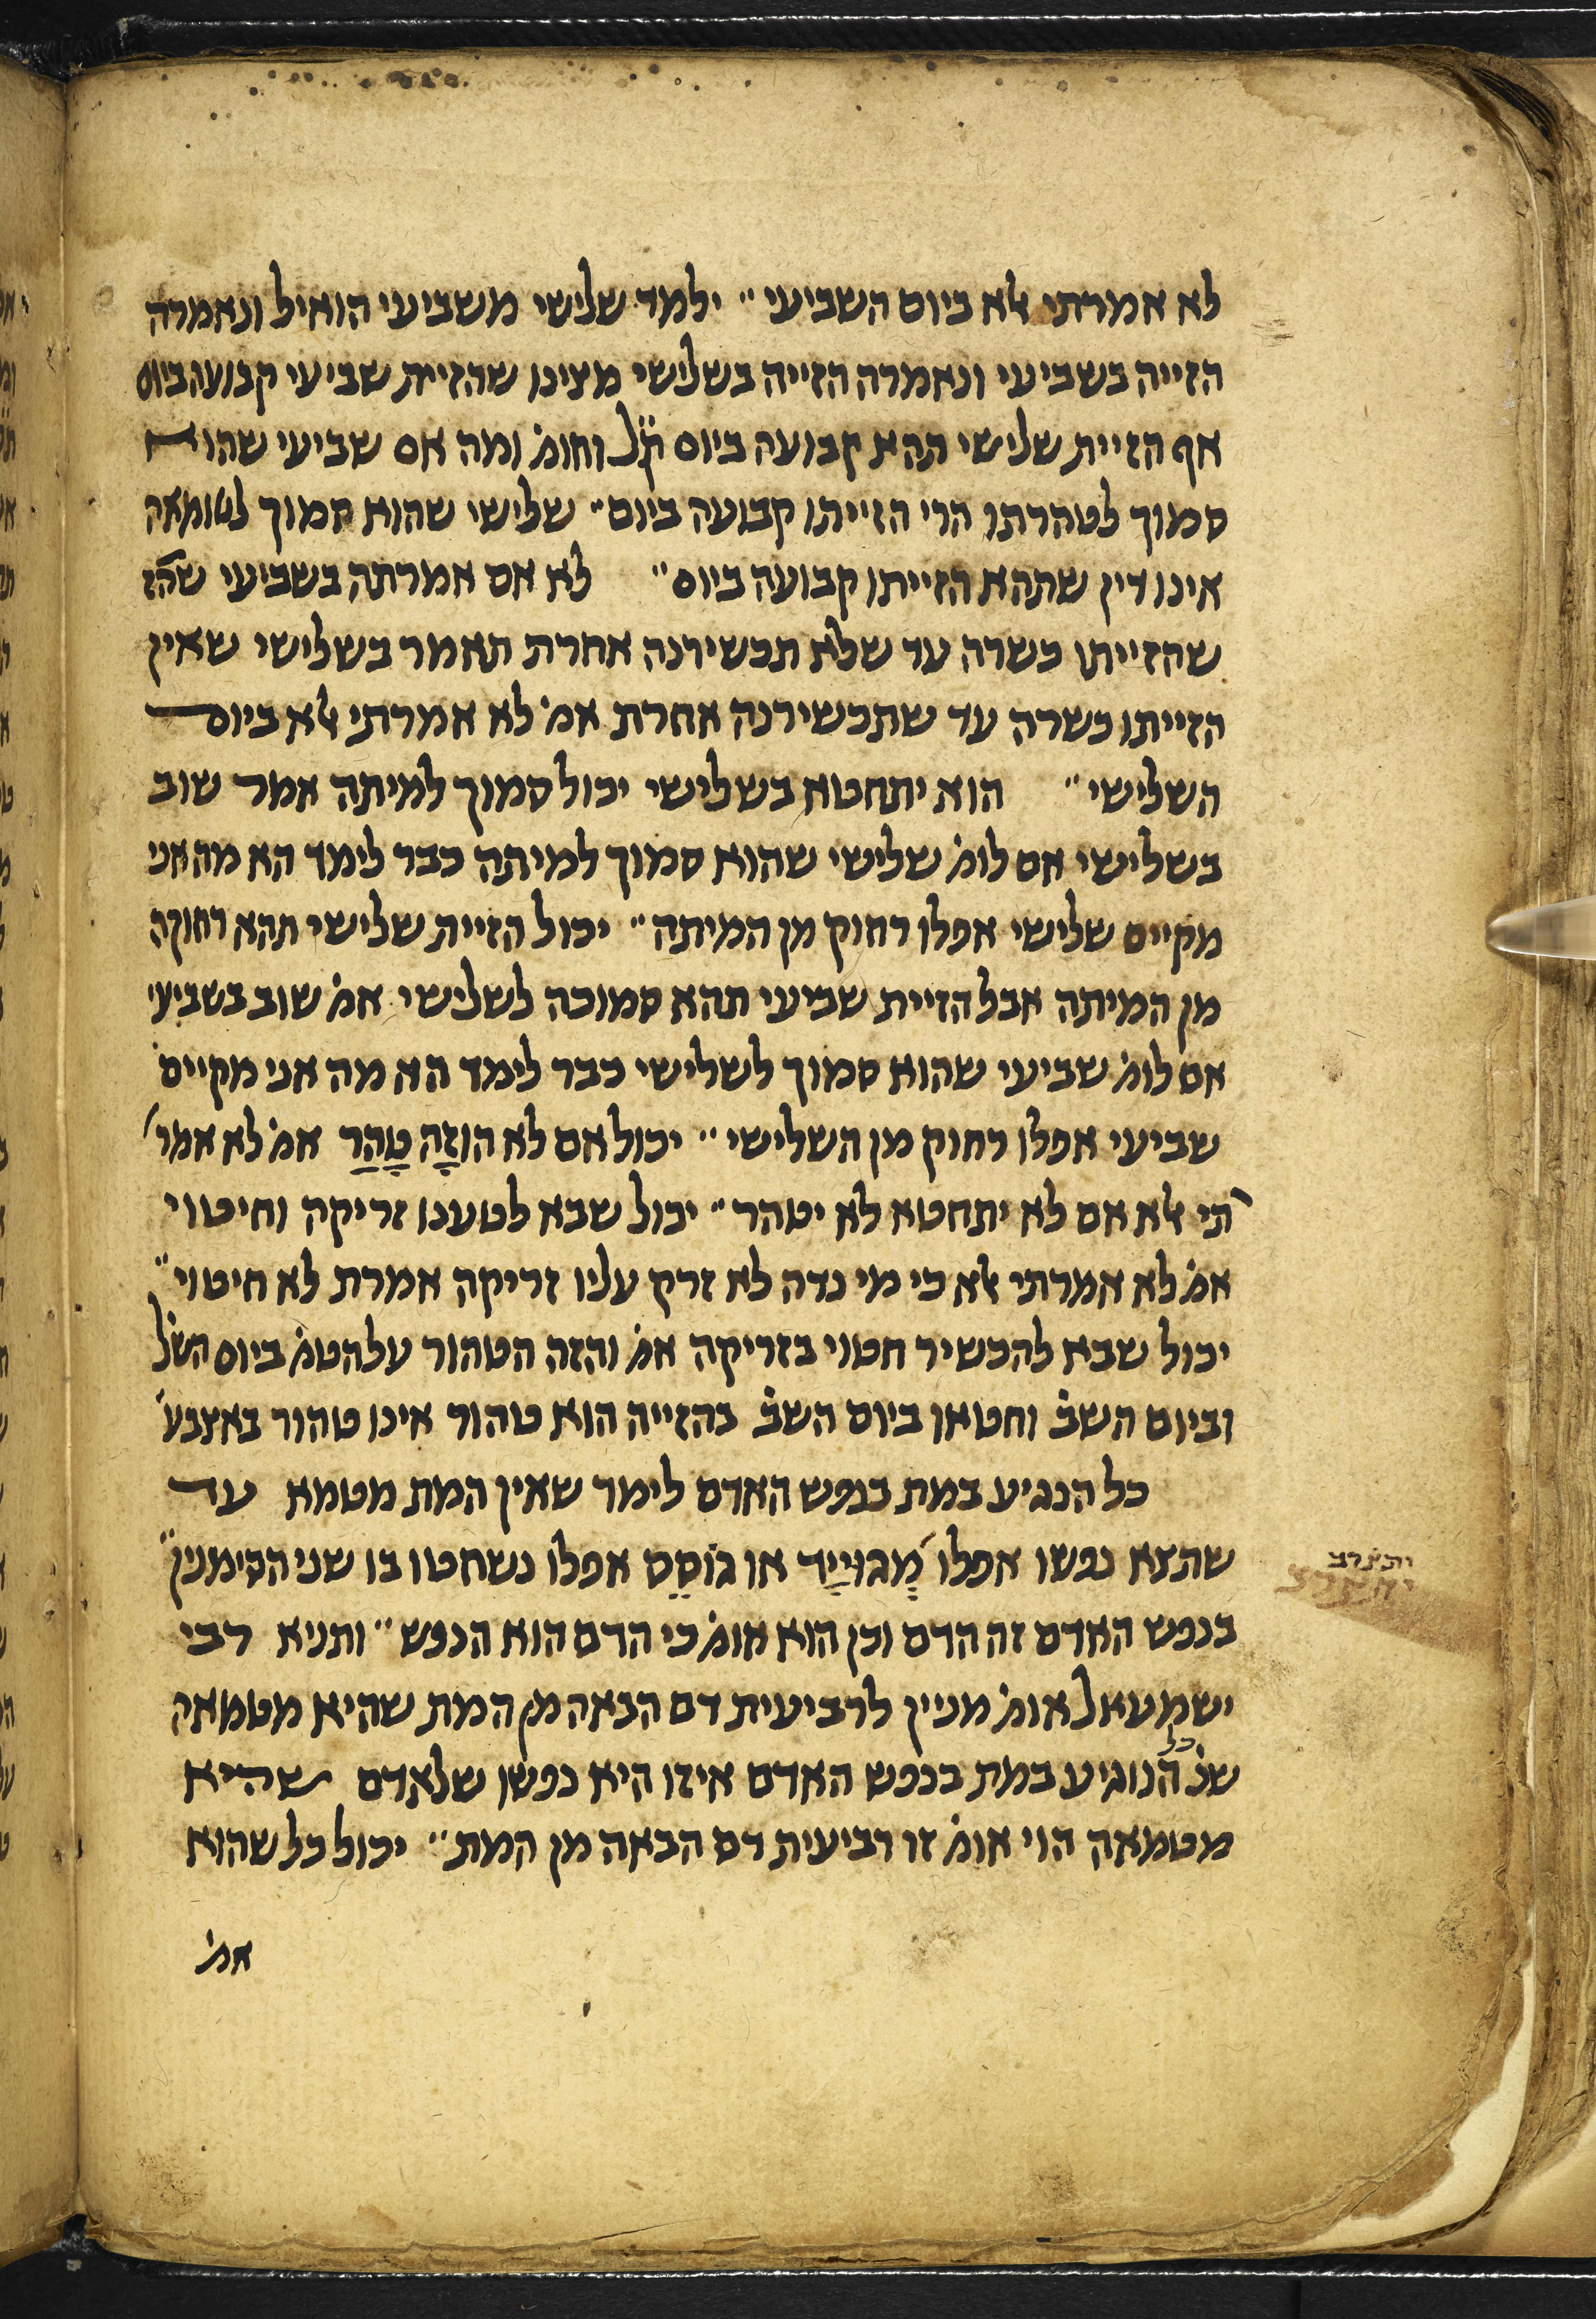 לא אמרתי אלא ביום השביעי״ ילמד שלישי משביעי הואיל ונאמרה
הזייה בשביעי ונאמרה הזייה בשלישי מצינו שהזיית שביעי קבועה ביום
אף הזיית שלישי תהא קבועה ביום ק״ל וחומ׳ ומה אם שביעי שהוא
סמוך לטהרתו הרי הזייתו קבועה ביום״ שלישי שהוא סמוך לטומאה
אינו דין שתהא הזייתו קבועה ביום״ לא אם אמרתה בשביעי שהז
שהזייתו כשרה עד שלא תכשירנה אחרת תאמר בשלישי שאין
הזייתו כשרה עד שתכשירנה אחרת אמ׳ לא אמרתי אלא ביום
השלישי״ הוא יתחטא בשלישי יכול סמוך למיתה אמר שוב
בשלישי אם לומ׳ שלישי שהוא סמוך למיתה כבר לימד הא מה אני
מקיים שלישי אפלו רחוק מן המיתה״ יכול הזיית שלישי תהא רחוקה
מן המיתה אבל הזיית שביעי תהא סמוכה לשלישי אמ׳ שוב בשביעי
אם לומ׳ שביעי שהוא סמוך לשלישי כבר לימד הא מה אני מקיים
שביעי אפלו רחוק מן השלישי״ יכול אם לא הוזָה טָהַר אמ׳ לא אמר
תי אלא אם לא יתחטא לא יטהר״ יכול שבא לטענו זריקה וחיטוי
אמ׳ לא אמרתי אלא כי מי נדה לא זרק עליו זריקה אמרת לא חיטוי״
יכול שבא להכשיר חטוי בזריקה אמ׳ והזה הטהור על הטמ׳ ביום השל׳
וביום השב׳ וחטאו ביום השב׳ בהזייה הוא טהור אינו טהור באצבע׳
כל הנגיע במת בנפש האדם לימד שאין המת מטמא עד
שתצא נפשו אפלו מְגוּיָיד או גוֹסֵס אפלו נשחטו בו שני הסימנין״
בנפש האדם זה הדם וכן הוא אומ׳ כי הדם הוא הנפש״ ותניא רבי
ישמעאל אומ׳ מניין לרביעית דם הבאה מן המת שהיא מטמאה
שנ׳ כל הנוגיע במת בנפש האדם איזו היא נפשו שלאדם שהיא
מטמאה הוי אומ׳ זו רביעית דם הבאה מן המת״ יכול כל שהוא
אמ׳